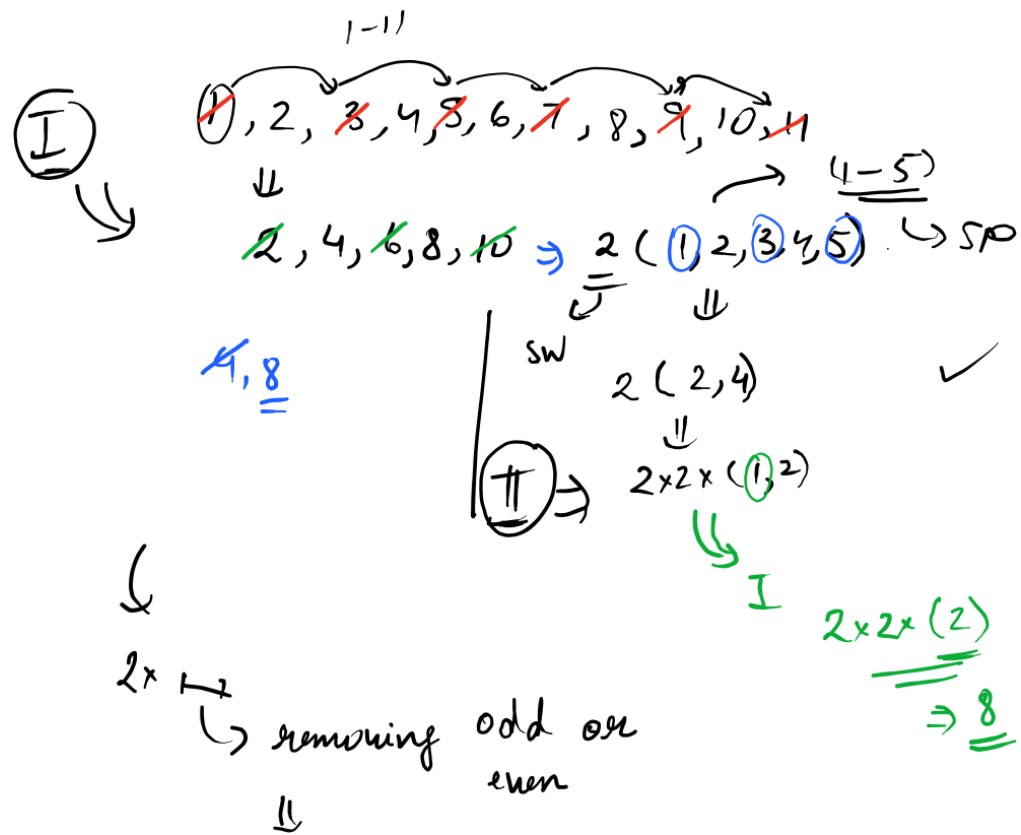 1-11
I
1, 2, 3, 4, 5, 6, 7, 8, 9, 10, 11
⇓
(4-5)
2, 4, 6, 8, 10 ⇒ 2 (1, 2, 3, 4, 5) ↳ SP
⇓
SW
4, 8
2 (2, 4)
⇓
II ⇒ 2x2x (1, 2)
I
2x2x (2)
⇒ 8
2x
↳ removing odd or
even
⇓